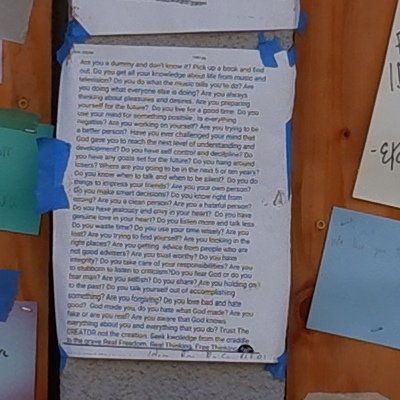 Are you a dummy and don't know it? Pick up a book and find
out. Do you get all your knowledge about life from music and
television? Do you do what the music tells you to do? Are
you doing what everyone else is doing? Are you always
thinking about pleasures and desires. Are you preparing
yourself for the future? Do you live for a good time. Do you
use your mind for something positive. Is everything
negative? Are you working on yourself? Are you trying to be
a better person? Have you ever challenged your mind that
God gave you to reach the next level of understanding and
development? Do you have self control and decipline? Do
you have any goals set for the future? Do you hang around
losers? Where are you going to be in the next 5 or ten years?
Do you know when to talk and when to be silent? Do you do
things to impress your friends? Are you your own person?
Do you make smart decisions? Do you know right from
wrong? Are you a clean person? Are you a hateful person?
Do you have jealousy and envy in your heart? Do you have
genuine love in your heart? Do you listen more and talk less
Do you waste time? Do you use your time wisely? Are you
lost? Are you trying to find yourself? Are you looking in the
right places? Are you getting advice from people who are
not good advisers? Are you trust worthy? Do you have
integrity? Do you take care of your responsibilities? Are you
to stubborn to listen to criticism?Do you fear God or do you
fear man? Are you selfish? Do you share? Are you holding on
to the past? Do you talk yourself out of accomplishing
something? Are you forgiving? Do you love bad and hate
good? God made you, do you hate what God made? Are you
fake or are you real? Are you aware that God knows
everything about you and everything that you do? Trust The
CREATOR not the creation. Seek knwoledge from the craddle
to the grave Real Freedom, Real Thinking, Free Thinking